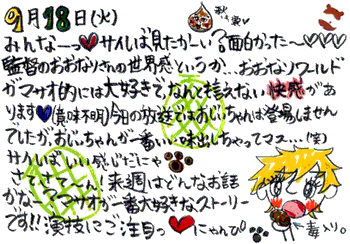 9月18日(火)
秋の実♥
みんなーっ♥サイレば見たかーい?面白かった〜♡♡♡
監督のおおなりさんの世界感というか…おおなりワールド
がマサオ的には大好きで、なんとも言えない快感があ
ります♥(意味不明)今日の放送ではおじぃちゃんは登場しません
でしたが、おじぃちゃんが一番いい味出しちゃってマス…(笑)
サイレばしいい感じだにゃ
さて、さて〜ん、来週はどんなお話
かな〜?マサオが一番大好きなストーリー
です!!演技にご注目っ♥にゃんぴ
毒入り。